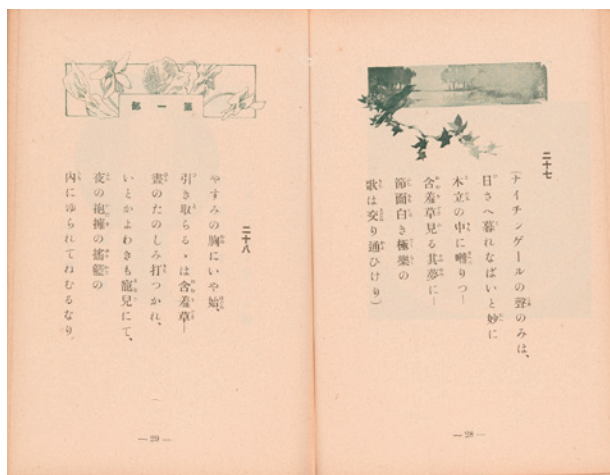 二十七
(ナイチンゲールの聲のみは、
日さへ暮れなばいと妙に
木立の中に囀りつ—
含羞草見る其夢に—
節面白き極樂の
歌は交り通ひけり)
— 28 —
第一部
二十八
やすみの胸にいや始、
引き取らるゝは含羞草—
晝のたのしみ打つかれ、
いとかよわきも寵兒にて、
夜の抱擁の搖籃の
內にゆられてねむるなり。
— 29 —